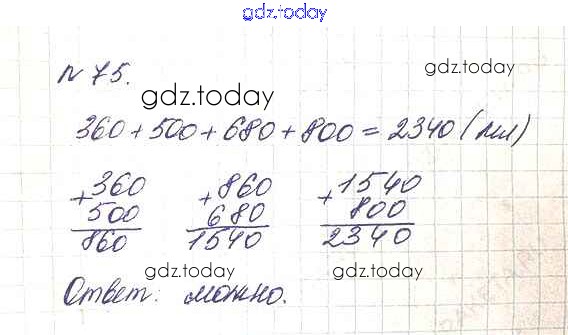 gdz.today
№ 75.
gdz.today
gdz.today
360 + 500 + 680 + 800 = 2340 (мл)
+360 +860 +1540
500 680 800
860 1540 2340
gdz.today gdz.today
Ответ: можно.